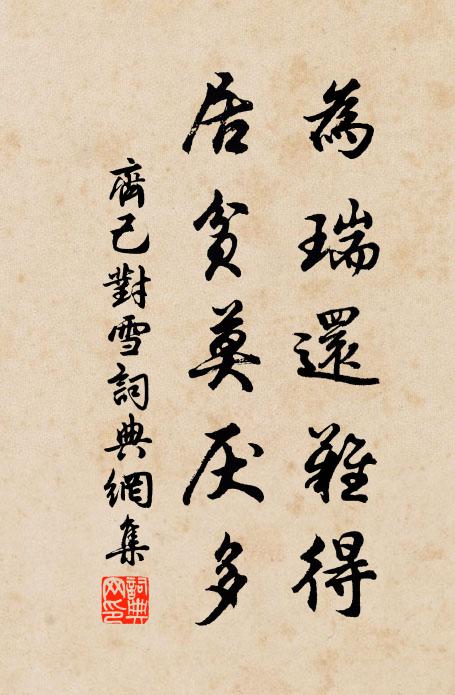 為瑞還難得
居貧莫厌多
齊己對雪詞典網集
詞典网印